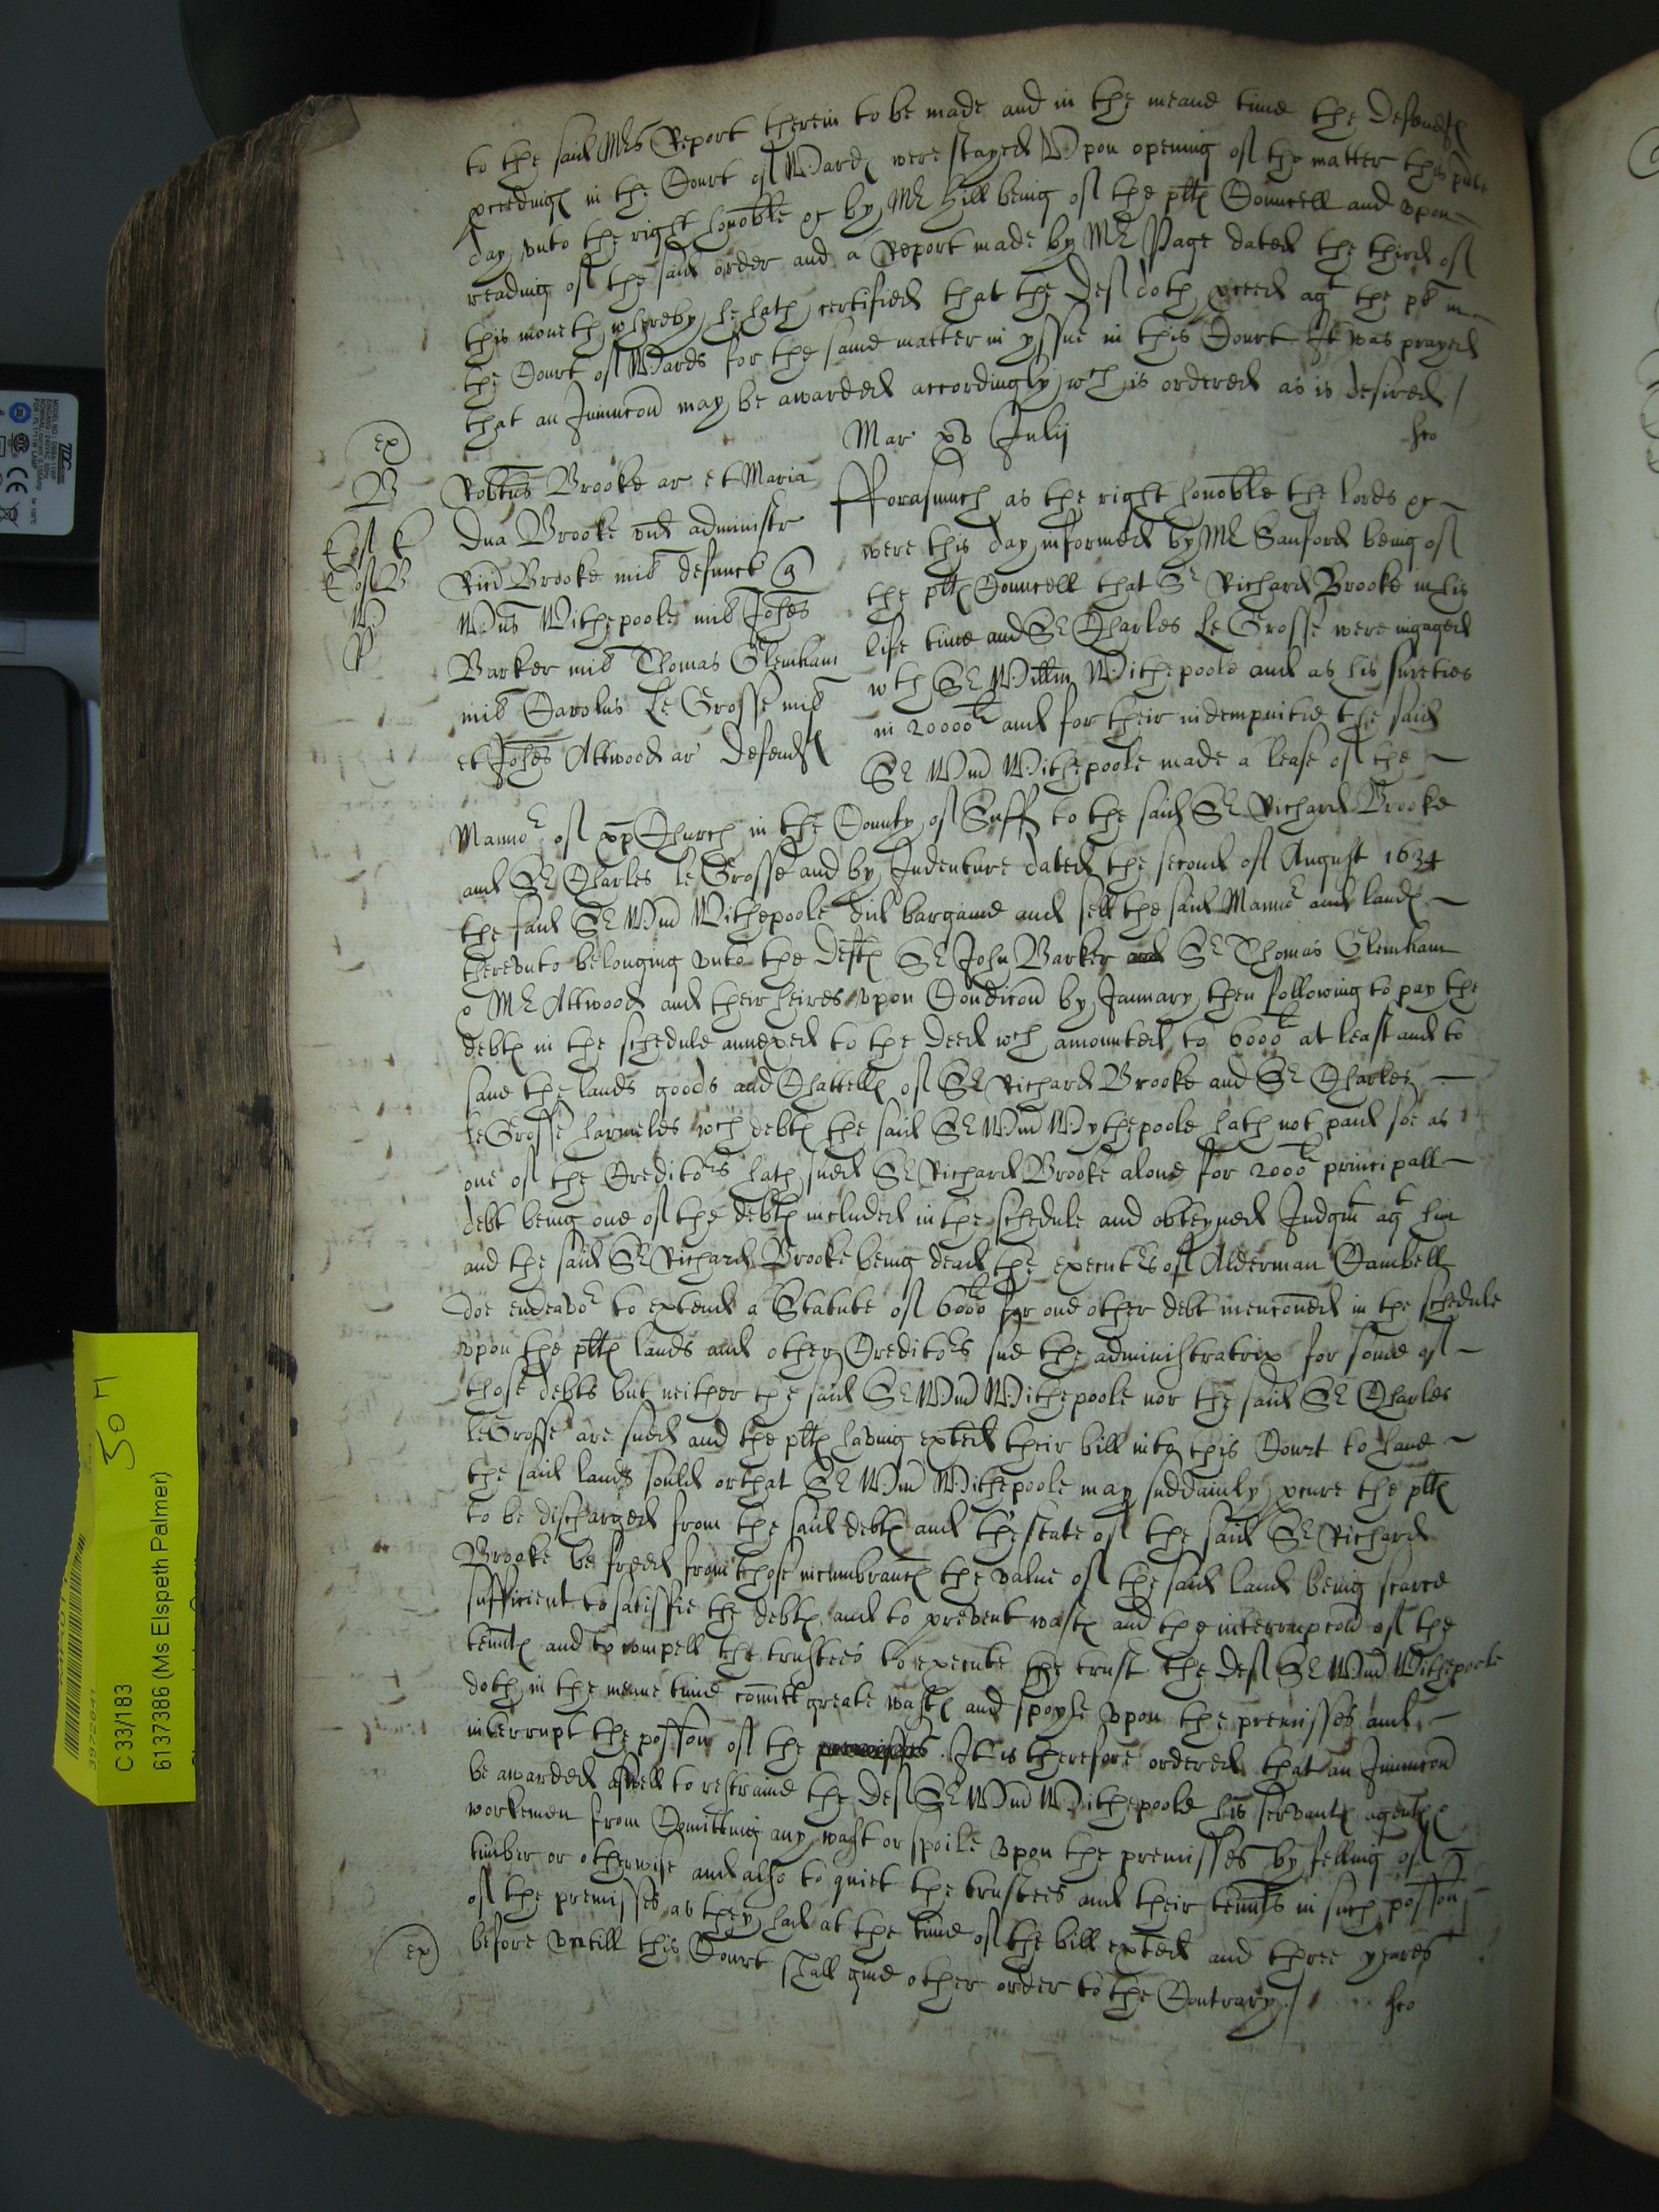 to the said Mrs Report therein to be made and in the meane time the Defendts
proceedings in the Court of Wards were stayed Upon opening of the matter this pnte
day unto the right honoble &c by Mr Hill being of the plts Councell and upon
reading of the said order and a Report made by Mr Page dated the third of
this moneth whereby he hath certified that the Def doth proceed agt the pt in
the Court of Wards for the same matter in yssue in this Court It was prayed
that an Iniuncon may be awarded accordingly wch is ordered as is desired /
Mar xv Julij
ex
B
Robtus Brooke ar et Maria
Dna Brooke vid administr
Rici Brooke mil defunct q
Wms Withepoole mil Johes
Barker mil Thomas Glemham
mil Carolus Le Grosse mil
et Johes Attwood ar Defendts
Forasmuch as the right honoble the lords &c
were this day informed by Mr Sanford being of
the plts Councell that Sr Richard Brooke in his
life time and Sr Charles Le Grosse were ingaged
wth Sr Willm Withepoole and as his sureties
in 20000l and for their indempnitie the said
Sr Wm Withepoole made a lease of the
Mannor of xpChurch in the County of Suff to the said Sr Richard Brooke
and Sr Charles le Grosse and by Indenture dated the second of August 1634
the said Sr Wm Withepoole did bargaine and sell the said Mannor and lands
thereunto belonging unto the Defts Sr John Barker Sr Thomas Glemham
& Mr Attwood and their heires upon Condicon by January then following to pay the
debts in the schedule annexed to the Deed wch amounted to 6000l at least and to
save the lands goods and Chattells of Sr Richard Brooke and Sr Charles
leGrosse harmeles wch debts the said Sr Wm Wythepoole hath not paid soe as
one of the Creditors hath sued Sr Richard Brooke alone for 2000l principall
debt being one of the debts included in the schedule and obteyned Judgmt agt him
and the said Sr Richard Brooke being dead the executrs of Alderman Cambell
doe endeavor to extend a Statute of 6000l for one other debt menconed in the schedule
upon the plts lands and other Creditors sue the administratrix for some of
those debts but neither the said Sr Wm Withepoole nor the said Sr Charles
leGrosse are sued and the plts having exhted their bill into this Court to have
the said lands sould or that Sr Wm Withepoole may suddainly procure the plts
to be discharged from the said debts and thestate of the said Sr Richard
Brooke be freed from those incumbrances the value of the said land being scarce
sufficient to satisfie the debts and to prevent wasts and the interrupcon of the
tennts and to compell the trustees to execute the trust the Def Sr Wm Withepoole
doth in the meane time comitt greate wasts and spoyle upon the premisses and
interrupt the posson of the premisses It is therefore ordered that an Iniuncon
be awarded aswell to restraine the Def Sr Wm Withepoole his servants agents &
workemen from Comitting any wast or spoile upon the premisses by felling of
timber or otherwise and also to quiet the trustees and their tennts in such posson
of the premisses as they had at the time of the bill exhted and three yeares
before untill this Court shall give other order to the Contrary /
ex
C 33/183
6137386 (Ms Elspeth Palmer)
50 H